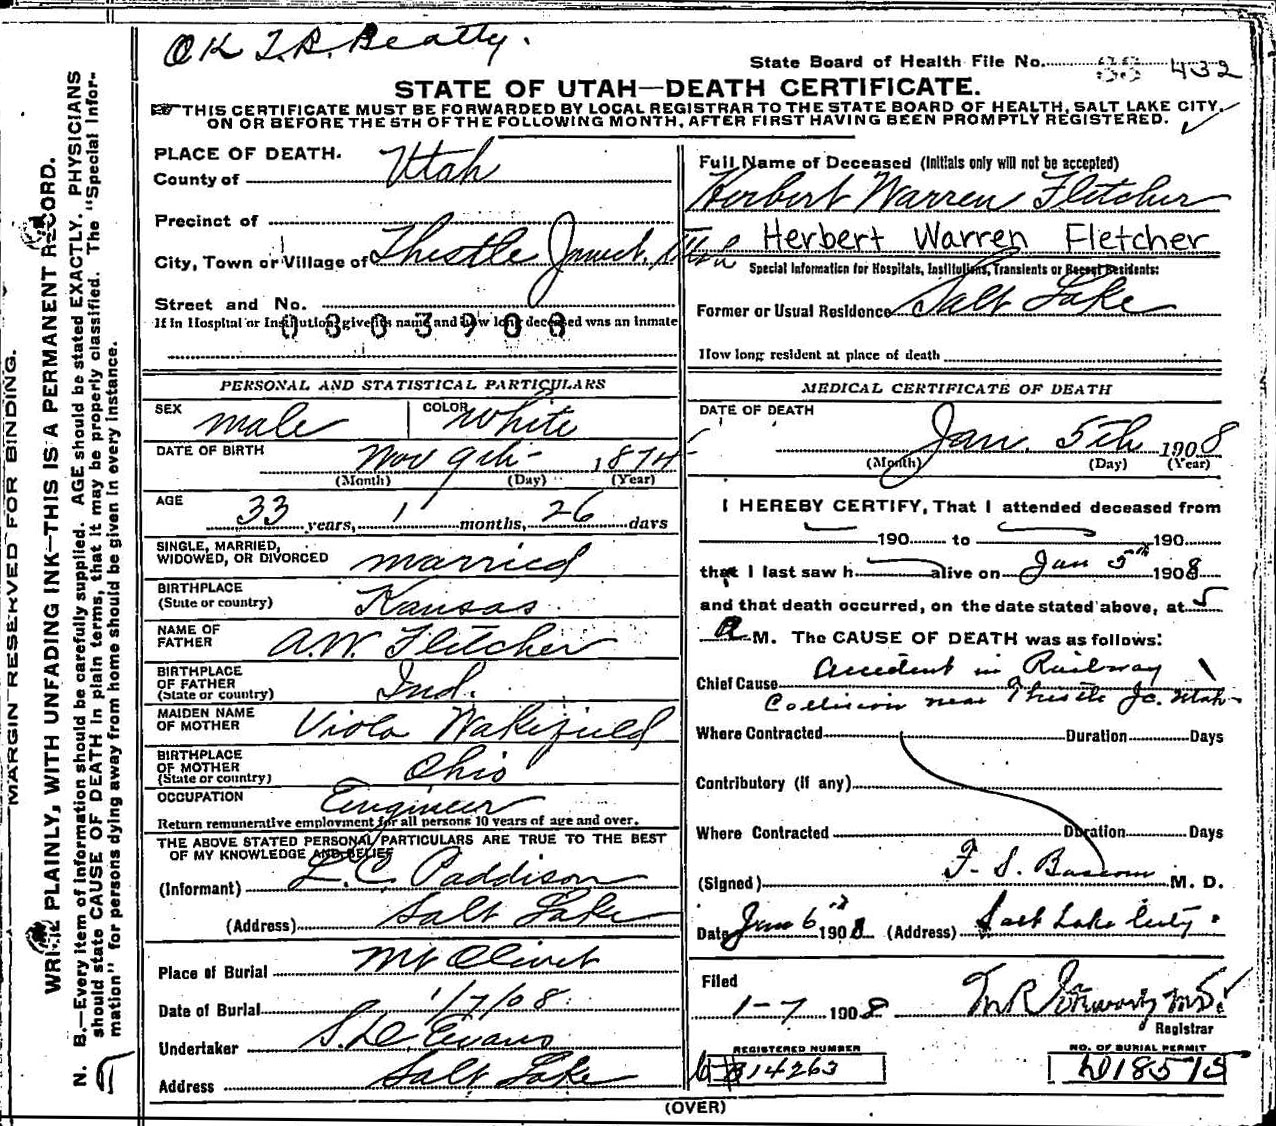 OK T.B. Beatty.
State Board of Health File No. 432
STATE OF UTAH—DEATH CERTIFICATE.
THIS CERTIFICATE MUST BE FORWARDED BY LOCAL REGISTRAR TO THE STATE BOARD OF HEALTH, SALT LAKE CITY,
ON OR BEFORE THE 5TH OF THE FOLLOWING MONTH, AFTER FIRST HAVING BEEN PROMPTLY REGISTERED.
MARGIN RESERVED FOR BINDING.
WRITE PLAINLY, WITH UNFADING INK—THIS IS A PERMANENT RECORD.
N. B.—Every item of information should be carefully supplied. AGE should be stated EXACTLY. PHYSICIANS
should state CAUSE OF DEATH in plain terms, that it may be properly classified. The "Special Infor-
mation" for persons dying away from home should be given in every instance.
PLACE OF DEATH.
County of Utah
Precinct of
City, Town or Village of Thistle Junct. Utah
Street and No.
If in Hospital or Institution, give its name and how long deceased was an inmate
0303908
PERSONAL AND STATISTICAL PARTICULARS
SEX male COLOR White
DATE OF BIRTH Nov 9th 1874
(Month) (Day) (Year)
AGE 33 years, 1 months, 26 days
SINGLE, MARRIED,
WIDOWED, OR DIVORCED married
BIRTHPLACE
(State or country) Kansas
NAME OF
FATHER A.W. Fletcher
BIRTHPLACE
OF FATHER
(State or country) Ind.
MAIDEN NAME
OF MOTHER Viola Wakefield
BIRTHPLACE
OF MOTHER
(State or country) Ohio
OCCUPATION Engineer
Return remunerative employment for all persons 10 years of age and over.
THE ABOVE STATED PERSONAL PARTICULARS ARE TRUE TO THE BEST
OF MY KNOWLEDGE AND BELIEF
(Informant) L.C. Paddison
(Address) Salt Lake
Place of Burial Mt Olivet
Date of Burial 1/7/08.
Undertaker S.D. Evans
Address Salt Lake
Full Name of Deceased (Initials only will not be accepted)
Herbert Warren Fletcher
Herbert Warren Fletcher
Special Information for Hospitals, Institutions, Transients or Recent Residents:
Former or Usual Residence Salt Lake
How long resident at place of death
MEDICAL CERTIFICATE OF DEATH
DATE OF DEATH Jan. 5th 1908
(Month) (Day) (Year)
I HEREBY CERTIFY, That I attended deceased from
190 to 190
that I last saw h alive on Jan 5th 1908
and that death occurred, on the date stated above, at 5
A M. The CAUSE OF DEATH was as follows:
Chief Cause Accident in Railway
Collision near Thistle Jc. Utah
Where Contracted Duration Days
Contributory (if any)
Where Contracted Duration Days
(Signed) F. S. Bascom M. D.
Date Jan 6th 1908 (Address) Salt Lake City.
Filed
1-7 1908
Registrar
REGISTERED NUMBER
14263
NO. OF BURIAL PERMIT
D18515
(OVER)